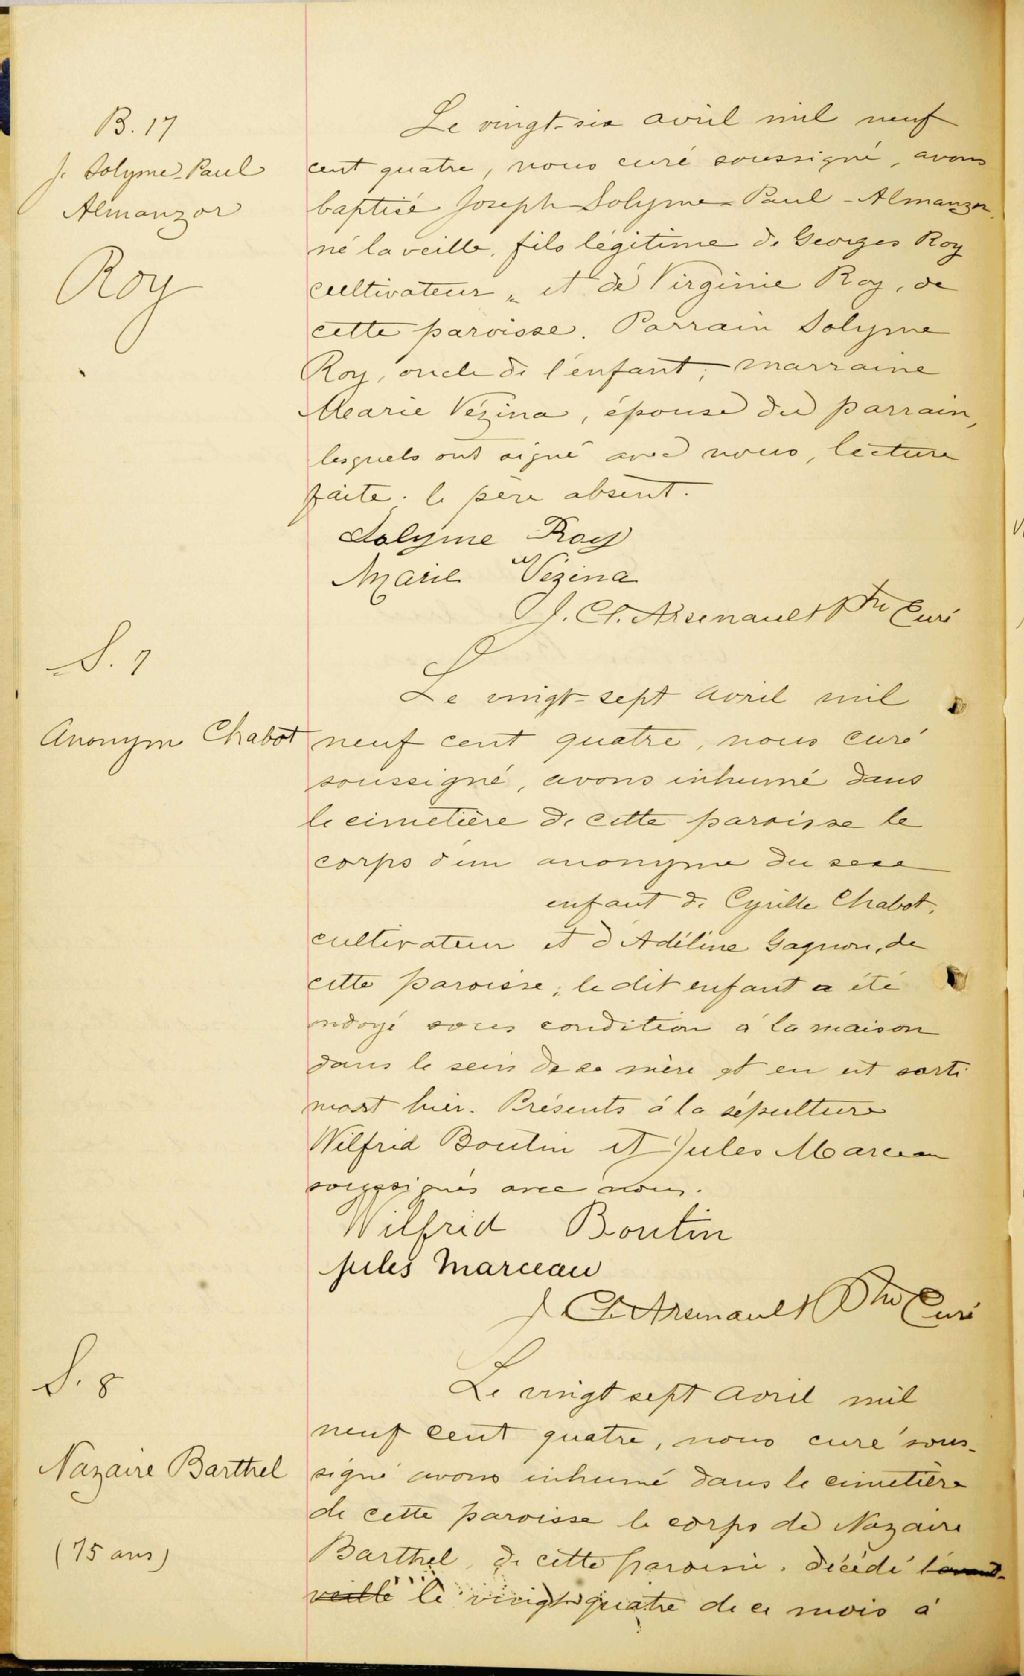 B. 17
J. Solyme-Paul
Almanzor
Roy
Le vingt-six avril mil neuf
cent quatre, nous curé soussigné, avons
baptisé Joseph-Solyme-Paul-Almanzor,
né la veille, fils légitime de Georges Roy
cultivateur, et de Virginie Roy, de
cette paroisse. Parrain Solyme
Roy, oncle de l'enfant; marraine
Marie Vézina, épouse du parrain,
lesquels ont signé avec nous, lecture
faite; le père absent.
Solyme Roy
Marie Vézina
J. Cl. Arsenault Ptre Curé
S. 7
Anonyme Chabot
Le vingt-sept avril mil
neuf cent quatre, nous curé
soussigné, avons inhumé dans
le cimetière de cette paroisse le
corps d'un anonyme du sexe
enfant de Cyrille Chabot,
cultivateur et d'Adéline Gagnon, de
cette paroisse; le dit enfant a été
ondoyé sous condition à la maison
dans le sein de sa mère et en est sorti
mort hier. Présents à la sépulture
Wilfrid Boutin et Jules Marceau
soussignés avec nous.
Wilfrid Boutin
Jules Marceau
J. Cl. Arsenault Ptre Curé
S. 8
Nazaire Barthel
(75 ans)
Le vingt sept avril mil
neuf cent quatre, nous curé sous-
signé avons inhumé dans le cimetière
de cette paroisse le corps de Nazaire
Barthel, de cette paroisse, décédé l'avant-
veille le vingt-quatre de ce mois à